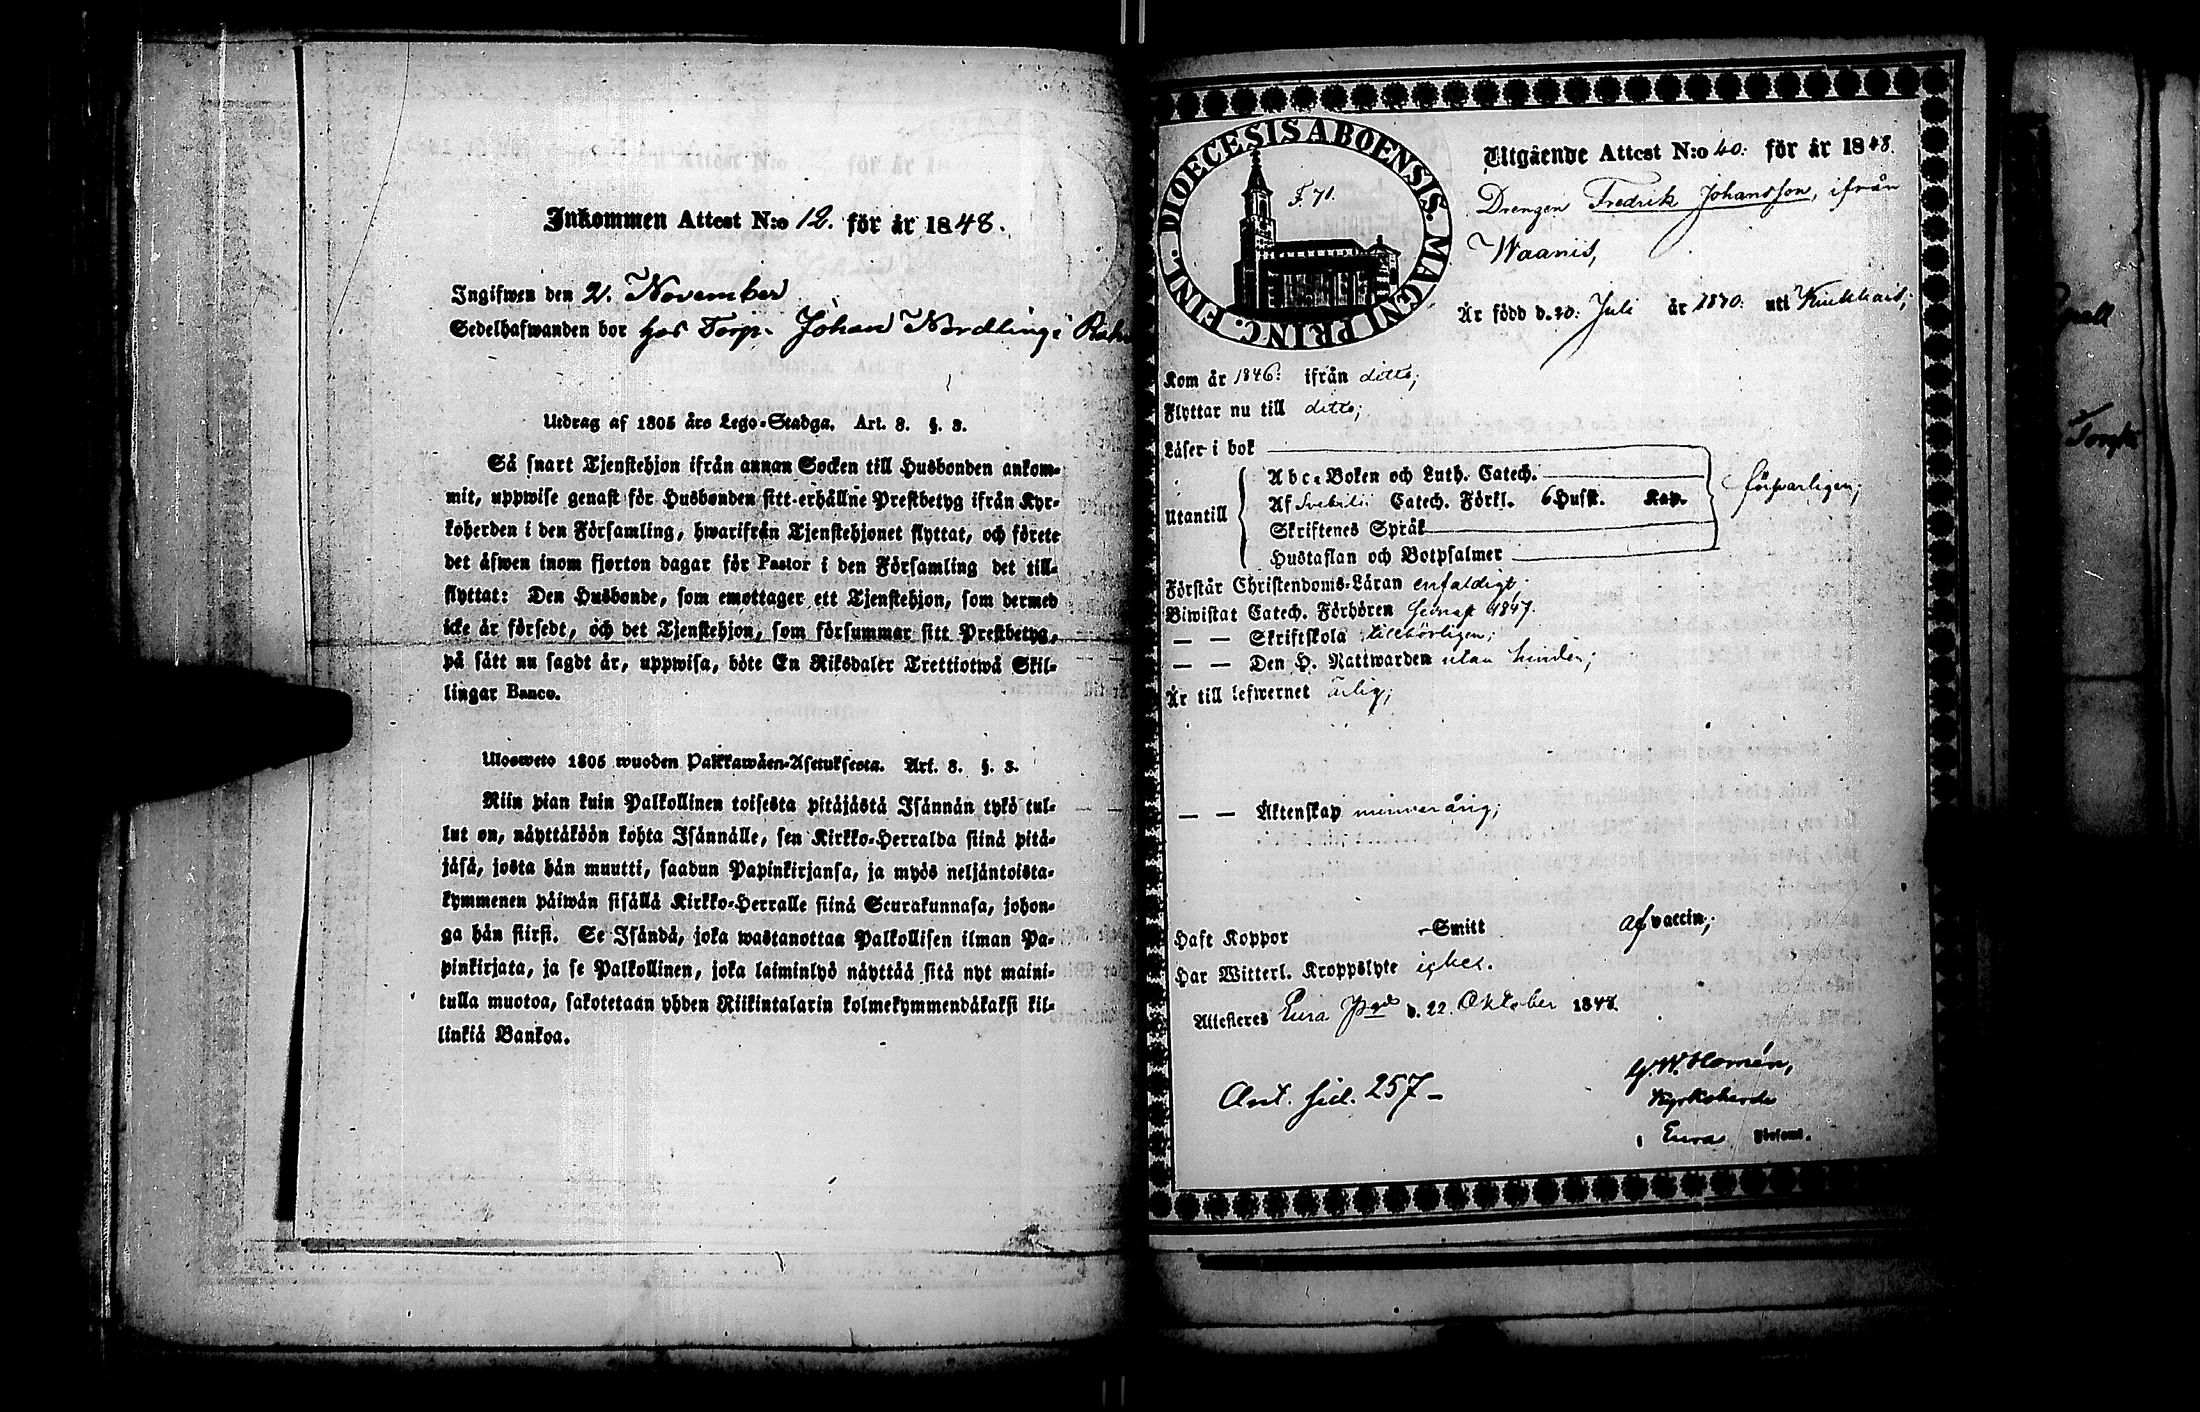 Inkommen Attest N:o 12. för år 1848.
Ingifwen den 2. November
Sedelhafwanden bor hos Torp. Johan Nordling i
Utdrag af 1805 års Lego-Stadga. Art. 8. §. 3.
Så snart Tjenstehjon ifrån annan Socken till Husbonden ankom-
mit, uppwise genast för Husbonden sitt erhållne Prestbetyg ifrån Kyr-
koherden i den Församling, hwarifrån Tjenstehjonet flyttat, och förete
det äfwen inom fjorton dagar för Pastor i den Församling det till-
flyttat: Den Husbonde, som emottager ett Tjenstehjon, som dermed
icke är försedt, och det Tjenstehjon, som försummar sitt Prestbetyg,
på sätt nu sagdt är, uppwisa, böte En Riksdaler Trettiotwå Skil-
lingar Banco.
Ulosweto 1805 wuoden Palkkawäen-Asetuksesta. Art. 8. §. 3.
Niin pian kuin Palkollinen toisesta pitäjästä Isännän tykö tul-
lut on, näyttäköön kohta Isännälle, sen Kirkko-Herralda siinä pitä-
jäsä, josta hän muutti, saadun Papinkirjansa, ja myös neljäntoista-
kymmenen päiwän sisällä Kirkko-Herralle siinä Seurakunnasa, johon-
ga hän siirsi. Se Isändä, joka wastanottaa Palkollisen ilman Pa-
pinkirjata, ja se Palkollinen, joka laiminlyö näyttää sitä nyt maini-
tulla muotoa, sakotetaan yhden Riikintalarin kolmekymmendäkaksi kil-
linkiä Bankoa.
DIOECESIS ABOENSIS. MAGNI PRINC. FINL.
F. 71.
Utgående Attest N:o 40: för år 1848.
Drengen Fredrik Johansson, ifrån
Waanis,
Är född d. 20. Juli år 1830: uti
Kom år 1846: ifrån ditto;
Flyttar nu till ditto;
Läser i bok
Utantill
Abc-Boken och Luth. Catech.
Af Svebilii Catech. Förkl. 6 Husst. Kap.
Skriftenes Språk
Hustaflan och Botpsalmer
försvarligen;
Förstår Christendoms-Läran enfaldigt;
Biwistat Catech. Förhören senast 1847.
— — Skriftskola tillbörligen;
— — Den H. Nattwarden utan hinder;
Är till lefwernet ärlig;
— — Äktenskap minderårig;
Haft Koppor Smitt af vaccin;
Har Witterl. Kroppslyte icke.
Attesteres Eura Pgd d. 22. Oktober 1848.
Ant. sid. 257 –
G. W. Homén,
Kyrkoherde
i Eura Församl.
Torp